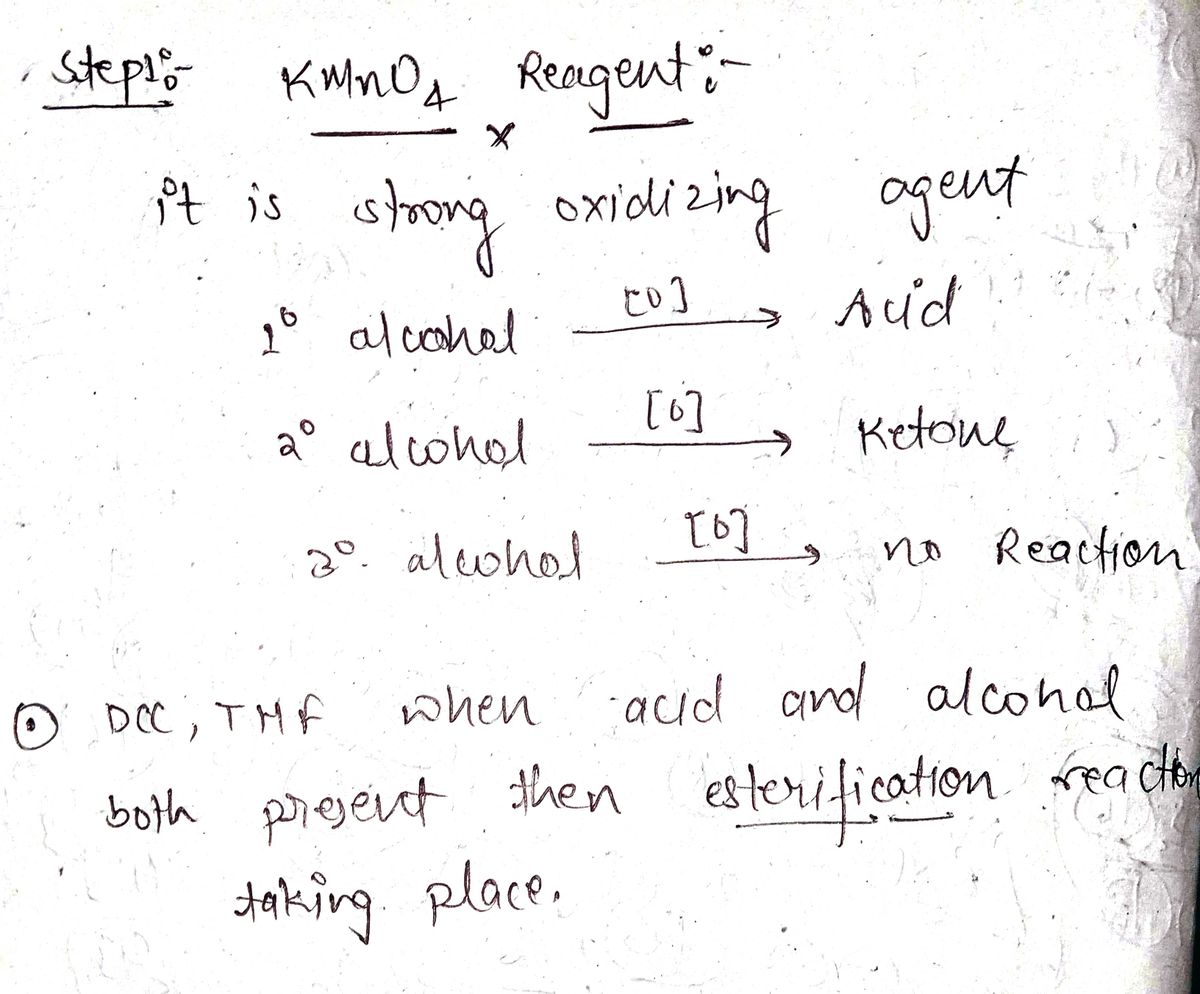 Step1:-  KMnO4 Reagent:-
it is strong oxidizing agent
1° alcohol [O] → Acid
2° alcohol [O] → Ketone
3° alcohol [O] → no Reaction
⊙ DCC, THF when acid and alcohol
both present then esterification reaction
taking place.